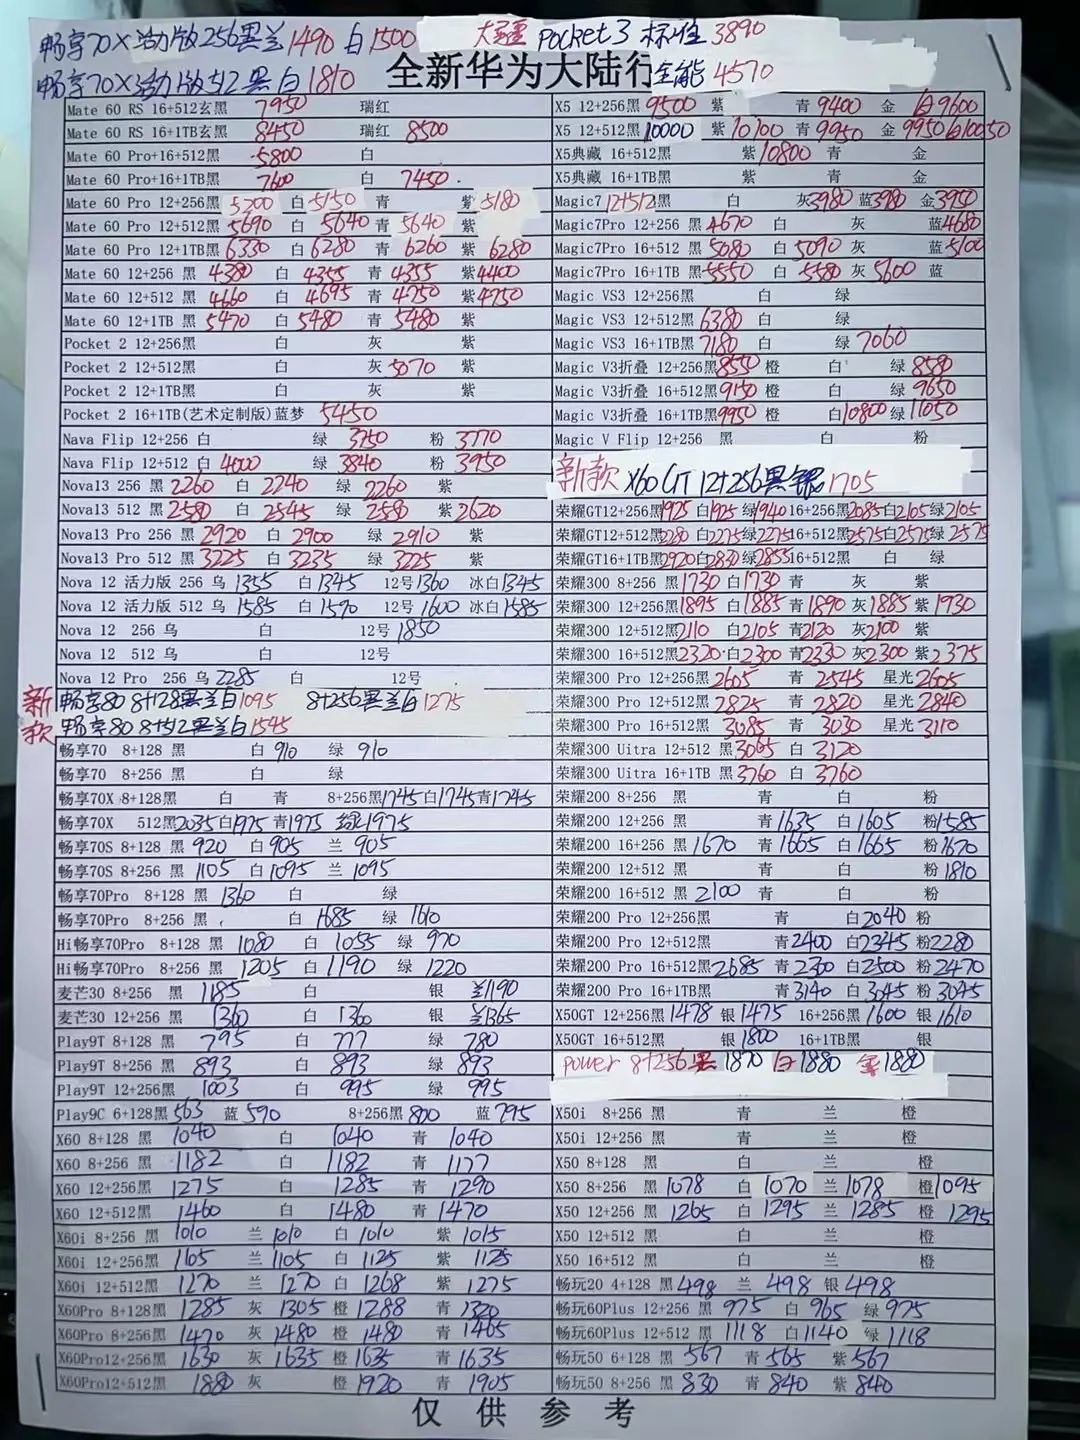 畅享70X活力版256黑兰1490 白1500
大疆 Pocket3 标准 3890
畅享70X活力版512 黑 白1810
全新华为大陆行
全能 4570
Mate 60 RS 16+512玄黑 7950 瑞红
Mate 60 RS 16+1TB玄黑 8450 瑞红 8500
Mate 60 Pro+16+512黑 5800 白
Mate 60 Pro+16+1TB黑 7600 白 7450
Mate 60 Pro 12+256黑 5200 白 5150 青 紫 5180
Mate 60 Pro 12+512黑 5690 白 5640 青 5640 紫
Mate 60 Pro 12+1TB黑 6330 白 6280 青 6260 紫 6280
Mate 60 12+256 黑 4380 白 4355 青 4355 紫4400
Mate 60 12+512 黑 4660 白 4695 青 4750 紫4750
Mate 60 12+1TB 黑 5470 白 5480 青 5480 紫
Pocket 2 12+256黑 白 灰 紫
Pocket 2 12+512黑 白 灰 5070 紫
Pocket 2 12+1TB黑 白 灰 紫
Pocket 2 16+1TB(艺术定制版)蓝梦 5450
Nava Flip 12+256 白 绿 3750 粉 3770
Nava Flip 12+512 白 4000 绿 3840 粉 3950
Nova13 256 黑 2260 白 2240 绿 2260 紫
Nova13 512 黑 2580 白 2545 绿 2580 紫 2620
Nova13 Pro 256 黑 2920 白 2900 绿 2910 紫
Nova13 Pro 512 黑 3225 白 3235 绿 3225 紫
Nova 12 活力版 256 乌 1355 白1345 12号1360 冰白1345
Nova 12 活力版 512 乌 1585 白1590 12号 1600 冰白1585
Nova 12 256 乌 白 12号 1850
Nova 12 512 乌 白 12号
Nova 12 Pro 256 乌 2285 白
新款
畅享80 8+128黑兰白1095 8+256黑兰白1275
畅享80 8+512黑兰白1545
畅享70 8+128 黑 白 910 绿 910
畅享70 8+256 黑 白 绿
畅享70X 8+128黑 白 青 8+256黑1745白1745青1745
畅享70X 512黑2035白1975 青1975 绿1975
畅享70S 8+128 黑 920 白 905 兰 905
畅享70S 8+256 黑 1105 白1095 兰 1095
畅享70Pro 8+128 黑 1360 白 绿
畅享70Pro 8+256 黑 白 1685 绿 1610
Hi畅享70Pro 8+128 黑 1080 白 1055 绿 970
Hi畅享70Pro 8+256 黑 1205 白 1190 绿 1220
麦芒30 8+256 黑 1185 白 银 兰1190
麦芒30 12+256 黑 1360 白 1360 银 兰1365
Play9T 8+128 黑 795 白 777 绿 780
Play9T 8+256 黑 893 白 893 绿 893
Play9T 12+256黑 1003 白 995 绿 995
Play9C 6+128黑563 蓝 590 8+256黑 800 蓝 795
X60 8+128 黑 1040 白 1040 青 1040
X60 8+256 黑 1182 白 1182 青 1177
X60 12+256黑 1275 白 1285 青 1290
X60 12+512黑 1460 白 1480 青 1470
X60i 8+256 黑 1010 兰 1010 白 1010 紫 1015
X60i 12+256黑 1105 兰 1105 白 1125 紫 1125
X60i 12+512黑 1270 兰 1270 白 1268 紫 1275
X60Pro 8+128黑 1285 灰 1305 橙 1288 青 1320
X60Pro 8+256黑 1470 灰 1480 橙 1480 青 1465
X60Pro12+256黑 1630 灰 1635 橙 1635 青 1635
X60Pro12+512黑 1880 灰 橙 1920 青 1905
X5 12+256黑 9500 紫 青 9400 金 白9600
X5 12+512黑 10000 紫 10100 青 9950 金 9950白10050
X5典藏 16+512黑 紫 10800 青 金
X5典藏 16+1TB黑 紫 青 金
Magic7 12+512黑 白 灰3980 蓝3980 金3950
Magic7Pro 12+256 黑 4670 白 灰 蓝4680
Magic7Pro 16+512 黑 5080 白 5090 灰 蓝5100
Magic7Pro 16+1TB 黑 5550 白 5580 灰 5600 蓝
Magic VS3 12+256黑 白 绿
Magic VS3 12+512黑 6380 白 绿
Magic VS3 16+1TB黑 7180 白 绿 7060
Magic V3折叠 12+256黑8550 橙 白 绿 8580
Magic V3折叠 16+512黑9150 橙 白 绿 9650
Magic V3折叠 16+1TB黑9950 橙 白10800 绿11050
Magic V Flip 12+256 黑 白 粉
新款 X60 GT 12+256黑银1705
荣耀GT12+256黑1925 白1925 绿1940 16+256黑2085白2105绿2105
荣耀GT12+512黑2280 白2275绿2275 16+512黑2575白2575绿 2575
荣耀GT16+1TB黑2920白2830绿2855 16+512黑 白 绿
荣耀300 8+256 黑1730 白1730 青 灰 紫
荣耀300 12+256黑1895 白1885 青1890 灰1885 紫1930
荣耀300 12+512黑2110 白2105 青2120 灰2100 紫
荣耀300 16+512黑2320 白2300 青2330 灰2300 紫2375
荣耀300 Pro 12+256黑2605 青 2545 星光 2605
荣耀300 Pro 12+512黑2825 青 2820 星光 2840
荣耀300 Pro 16+512黑 3085 青 3030 星光 3110
荣耀300 Uitra 12+512 黑3065 白 3120
荣耀300 Uitra 16+1TB 黑3760 白 3760
荣耀200 8+256 黑 青 白 粉
荣耀200 12+256 黑 青 1635 白 1605 粉1585
荣耀200 16+256 黑 1670 青 1665 白 1665 粉1670
荣耀200 12+512 黑 青 白 粉1810
荣耀200 16+512 黑 2100 青 白 粉
荣耀200 Pro 12+256黑 青 白2040 粉
荣耀200 Pro 12+512黑 青2400 白2345 粉2280
荣耀200 Pro 16+512黑2685 青2300 白2500 粉2470
荣耀200 Pro 16+1TB黑 青3140 白3045 粉3045
X50GT 12+256黑1478 银 1475 16+256黑1600 银1610
X50GT 16+512黑 银1800 16+1TB黑 银
power 8+256黑 1870 白1880 金1880
X50i 8+256 黑 青 兰 橙
X50i 12+256 黑 青 兰 橙
X50 8+128 黑 白 兰 橙
X50 8+256 黑 1078 白 1070 兰 1078 橙1095
X50 12+256 黑 1265 白 1295 兰 1285 橙 1295
X50 12+512 黑 白 兰 橙
X50 16+512 黑 白 兰 橙
畅玩20 4+128 黑 498 兰 498 银 498
畅玩60Plus 12+256 黑 975 白 965 绿 975
畅玩60Plus 12+512 黑 1118 白1140 绿 1118
畅玩50 6+128 黑 567 青 565 紫 567
畅玩50 8+256 黑 830 青 840 紫 840
仅供参考